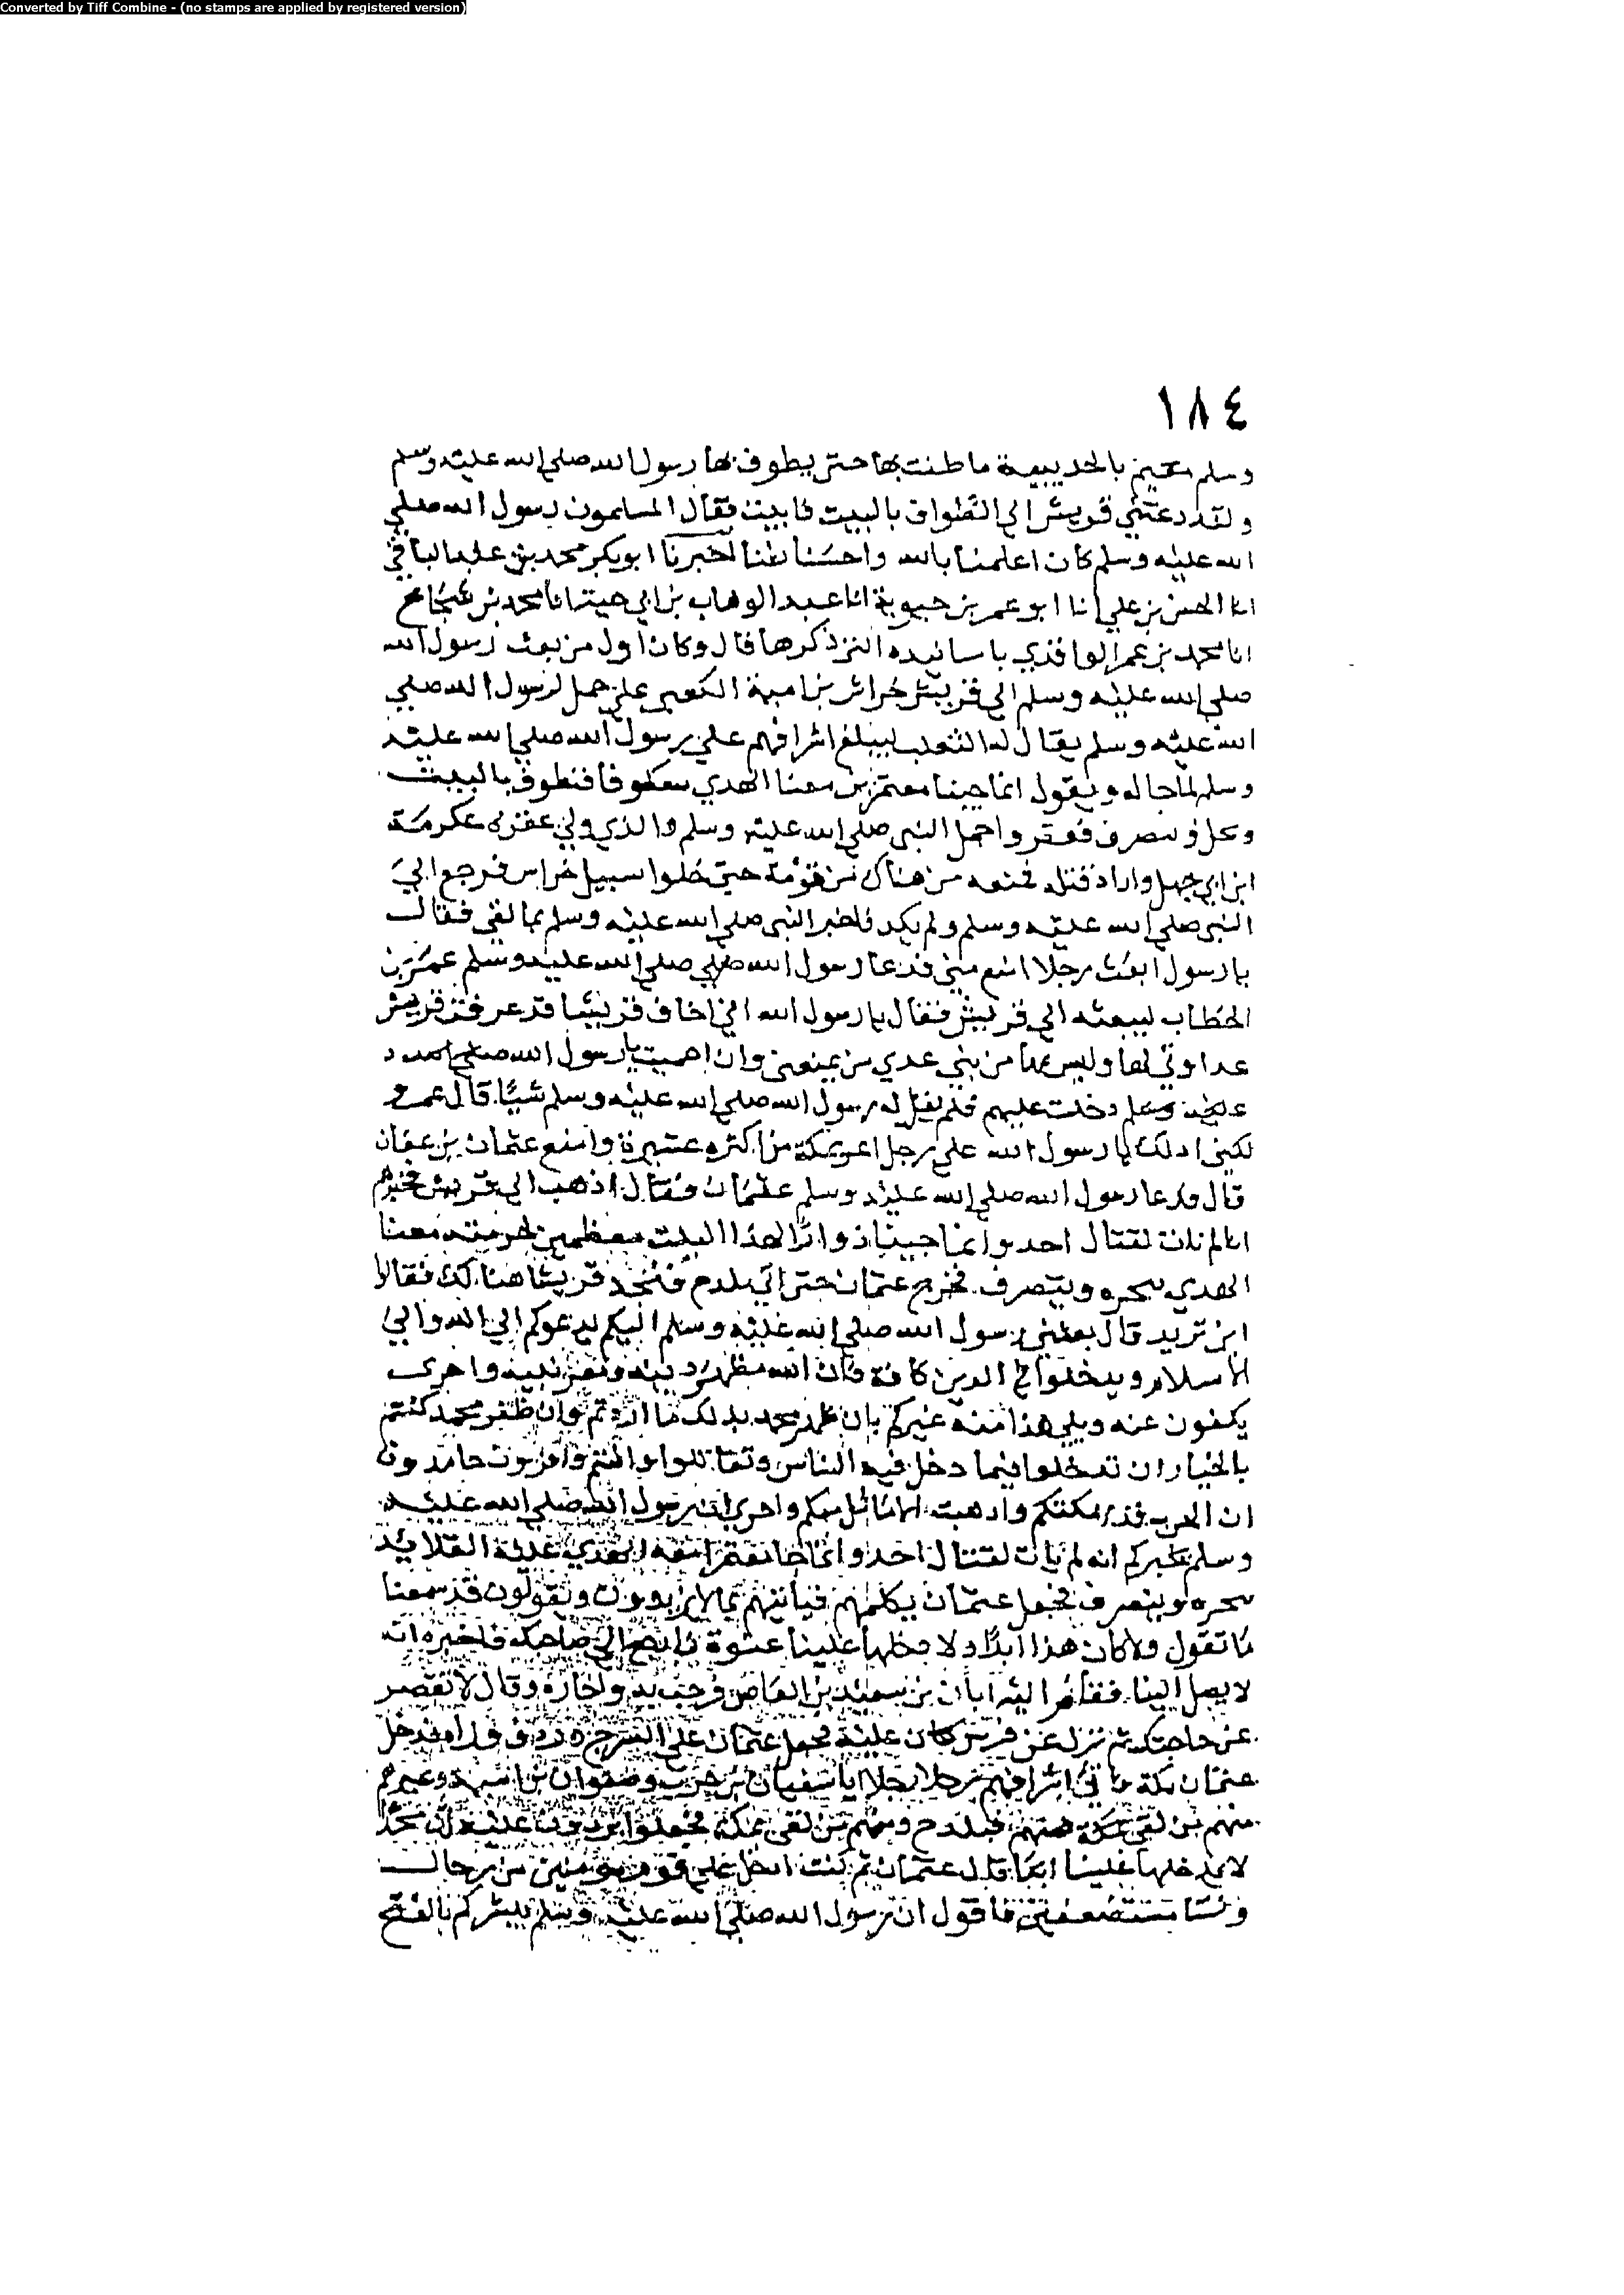 Converted by Tiff Combine - (no stamps are applied by registered version)
١٨٤
وسلم مقيم بالحديبية ما طفت بها حتى يطوف بها رسول الله صلى الله عليه وسلم
ولقد دعتني قريش الى الطواف بالبيت فابيت فقال المسلمون رسول الله صلى
الله عليه وسلم كان اعلمنا بالله واحسننا ظنا اخبرنا ابو بكر محمد بن عبد الباقي
انا الحسن بن علي انا ابو عمر بن حيوية انا عبد الوهاب بن ابي حية انا محمد بن شجاع
انا محمد بن عمر الواقدي باسانيده التي ذكرها قال وكان اول من بعث رسول الله
صلى الله عليه وسلم الى قريش خراش بن امية الكعبي على جمل لرسول الله صلى
الله عليه وسلم يقال له الثعلب ليبلغ اشرافهم على رسول الله صلى الله عليه
وسلم لما جا له ويقول انما جينا معتمرين معنا الهدي معكوفا فنطوف بالبيت
ونحل وننصرف فعقروا جمل النبي صلى الله عليه وسلم والذي ولي عقره عكرمة
ابن ابي جهل واراد قتله فمنعه من هناك من قومه حتى خلوا سبيل خراش فرجع الى
النبي صلى الله عليه وسلم ولم يكد فاخبر النبي صلى الله عليه وسلم بما لقي فقال
يا رسول ابعث رجلا امنع مني فدعا رسول الله صلى صلى الله عليه وسلم عمر بن
الخطاب ليبعثه الى قريش فقال يا رسول الله اني اخاف قريشا قد عرفت قريش
عداوتي لها وليس بها من بني عدي من يمنعني وان احببت يا رسول الله صلى الله
عليه وسلم دخلت عليهم فلم يقل له رسول الله صلى الله عليه وسلم شيئا قال عمر
لكني ادلك يا رسول الله على رجل اعز بمكة مني اكثر عشيرة وامنع عثمان بن عفان
قال فدعا رسول الله صلى الله عليه وسلم عثمان فقال اذهب الى قريش فخبرهم
انا لم نات لقتال احد وانما جينا زوارا لهذا البيت معظمين لحرمته معنا
الهدي ننحره وننصرف فخرج عثمان حتى اتى بلدح فنجد قريشا هنالك فقالوا
اين تريد قال بعثني رسول الله صلى الله عليه وسلم اليكم يدعوكم الى الله والى
الاسلام ويدخلوا في الدين كافة فان الله مظهر دينه ومعز نبيه واخرى
يكفون عنه ويلي هذا منه غيركم بان ظفر محمد بذلك ما اردتم وان ظفر محمد كنتم
بالخيار ان تدخلوا فيما دخل فيه الناس وتقاتلوا وانتم وافرون جامون
ان الحرب قد نهكتكم واذهبت الاماثل منكم واخرى ان رسول الله صلى الله عليه
وسلم يخبركم انه لم يات لقتال احد وانما جا معتمرا معه الهدي عليه القلائد
ينحره وينصرف فجعل عثمان يكلمهم فياتيهم بما لا يريدون ويقولون قد سمعنا
ما تقول ولا كان هذا ابدا ولا دخلها علينا عنوة فارجع الى صاحبك فاخبره انه
لا يصل الينا فقام اليه ابان بن سعيد بن العاص فرحب به واجاره وقال لا تقصر
عن حاجتك ثم نزل عن فرس كان عليه فحمل عثمان على السرج وردف وراه فدخل
عثمان مكة فاتى اشرافهم رجلا رجلا ابا سفيان بن حرب وصفوان بن امية وغيرهم
منهم من لقي ببلدح ومنهم من لقي بمكة فجعلوا يردون عليه ان محمدا
لا يدخلها علينا ابدا قال عثمان ثم كنت ادخل على قوم مومنين من رجال
ونسا مستضعفين فاقول ان رسول الله صلى الله عليه وسلم يبشركم بالفتح